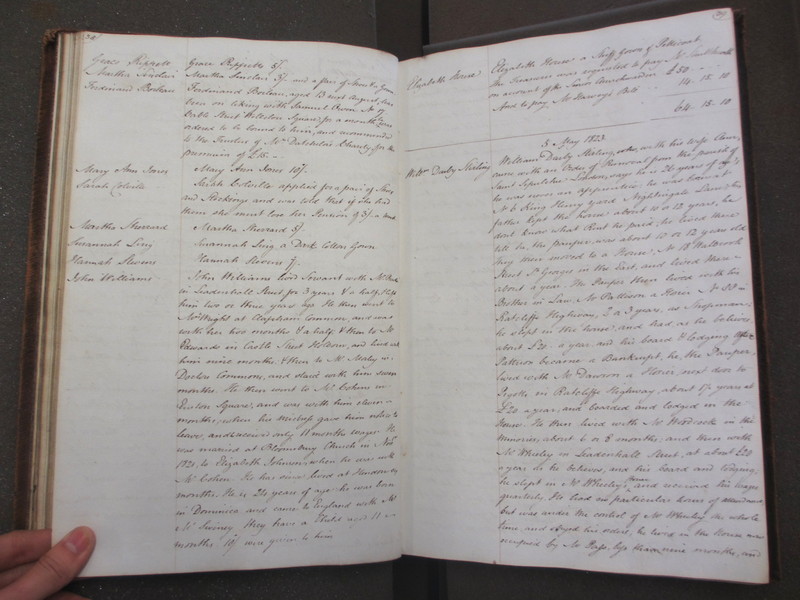 Grace Rippeth
Martha Sinclair
Ferdinand Borlean
Mary Ann Jones
Sarah Colville
Martha Sherrard
Susannah Ling
Hannah Stevens
John Williams
Grace Rippeth 5/.
Martha Sinclair 3/. and a pair of Sheets & Gown
Ferdinand Borlean, aged 13 last August, has
been on liking with Samuel Dunn No 17
Street Square for a month
ordered to be bound to him, and recommended
to the Trustees of Mr Charity for the
premium of £15.–
Mary Ann Jones 10/.
Sarah Colville applied for a pair of Shoes
and Stockings and was told that if She had
them she must lose her Pension of 3/. a week
Martha Sherrard 5/.
Susannah Ling a Dark Cotton Gown
Hannah Stevens 7/.
John Williams lived Servant with Mr
in Leadenhall Street for 3 years & a half,
him two or three years ago He then went to
Mr Wright at Clapham Common, and was
with her two months & a half, & then to Mr
Edwards in Castle Street Holborn, and lived with
him nine months, & then to Mr in
Doctors Commons, and staid with him seven
months. He then went to Mr Cohens in
Euston Square, and was with him eleven
months, when his mistress gave him notice to
leave, and received only 11 months wages He
was married at Bloomsbury Church in Novr
1821, to Elizabeth Johnson, when he was with
Mr Cohen. He has since lived at Hendon
months. He is 24 years of age – he was born
in Dominica and came to England with Mr
Mc Swiney they have a Child aged 11
months. 10/ were given to him
Elizabeth House
Willm Darby Stirling
Elizabeth House a Stuff Gown & Petticoat.
The Treasurer was requested to pay Mr
on account of the £50 . –
And to pay, Mr Bill 14 . 15 . 10
64 . 15 . 10
3 May 1823
William Darby Stirling, who, with his wife Ann,
came with an Order of Removal from the parish of
Saint Sepulchre London, says he is 26 years of age &
he was never an apprentice he was born at
No 6 King Henry Yard Nightingale Lane, his
father kept the house about 10 or 12 years, he
don't know what Rent he paid, he lived there
till he, the pauper, was about 12 or 12 years old
they were moved to a House, No 18
Street St Georges in the East, and lived there
about a year. The Pauper then lived with his
Brother in Law, Mr Pattison a Hosier, No in
Ratcliffe Highway, 2 or 3 years, as Shopman;
he slept in the house, and had, as he believes,
about £20. a year, and his board & lodging After
Pattison became a Bankrupt, he, the Pauper,
lived with Mr Dawson a Hosier, next door to
in Ratcliffe Highway, about 1½ years at
£20 a year, and boarded and lodged in the
House. He then lived with Mr Woodcock in the
Minories, about 6 or 8 months, and then with
Mr Wheeley in Leadenhall Street, at about £20
a year as he believes, and his board and lodging,
he slept in Mr Wheeley's House, and received his wages
quarterly. He had no particular hours of attendance
but was under the control of Mr Wheeley the whole
time, and obeyed his orders; he lived in the House now
occupied by Mr less than nine months, and